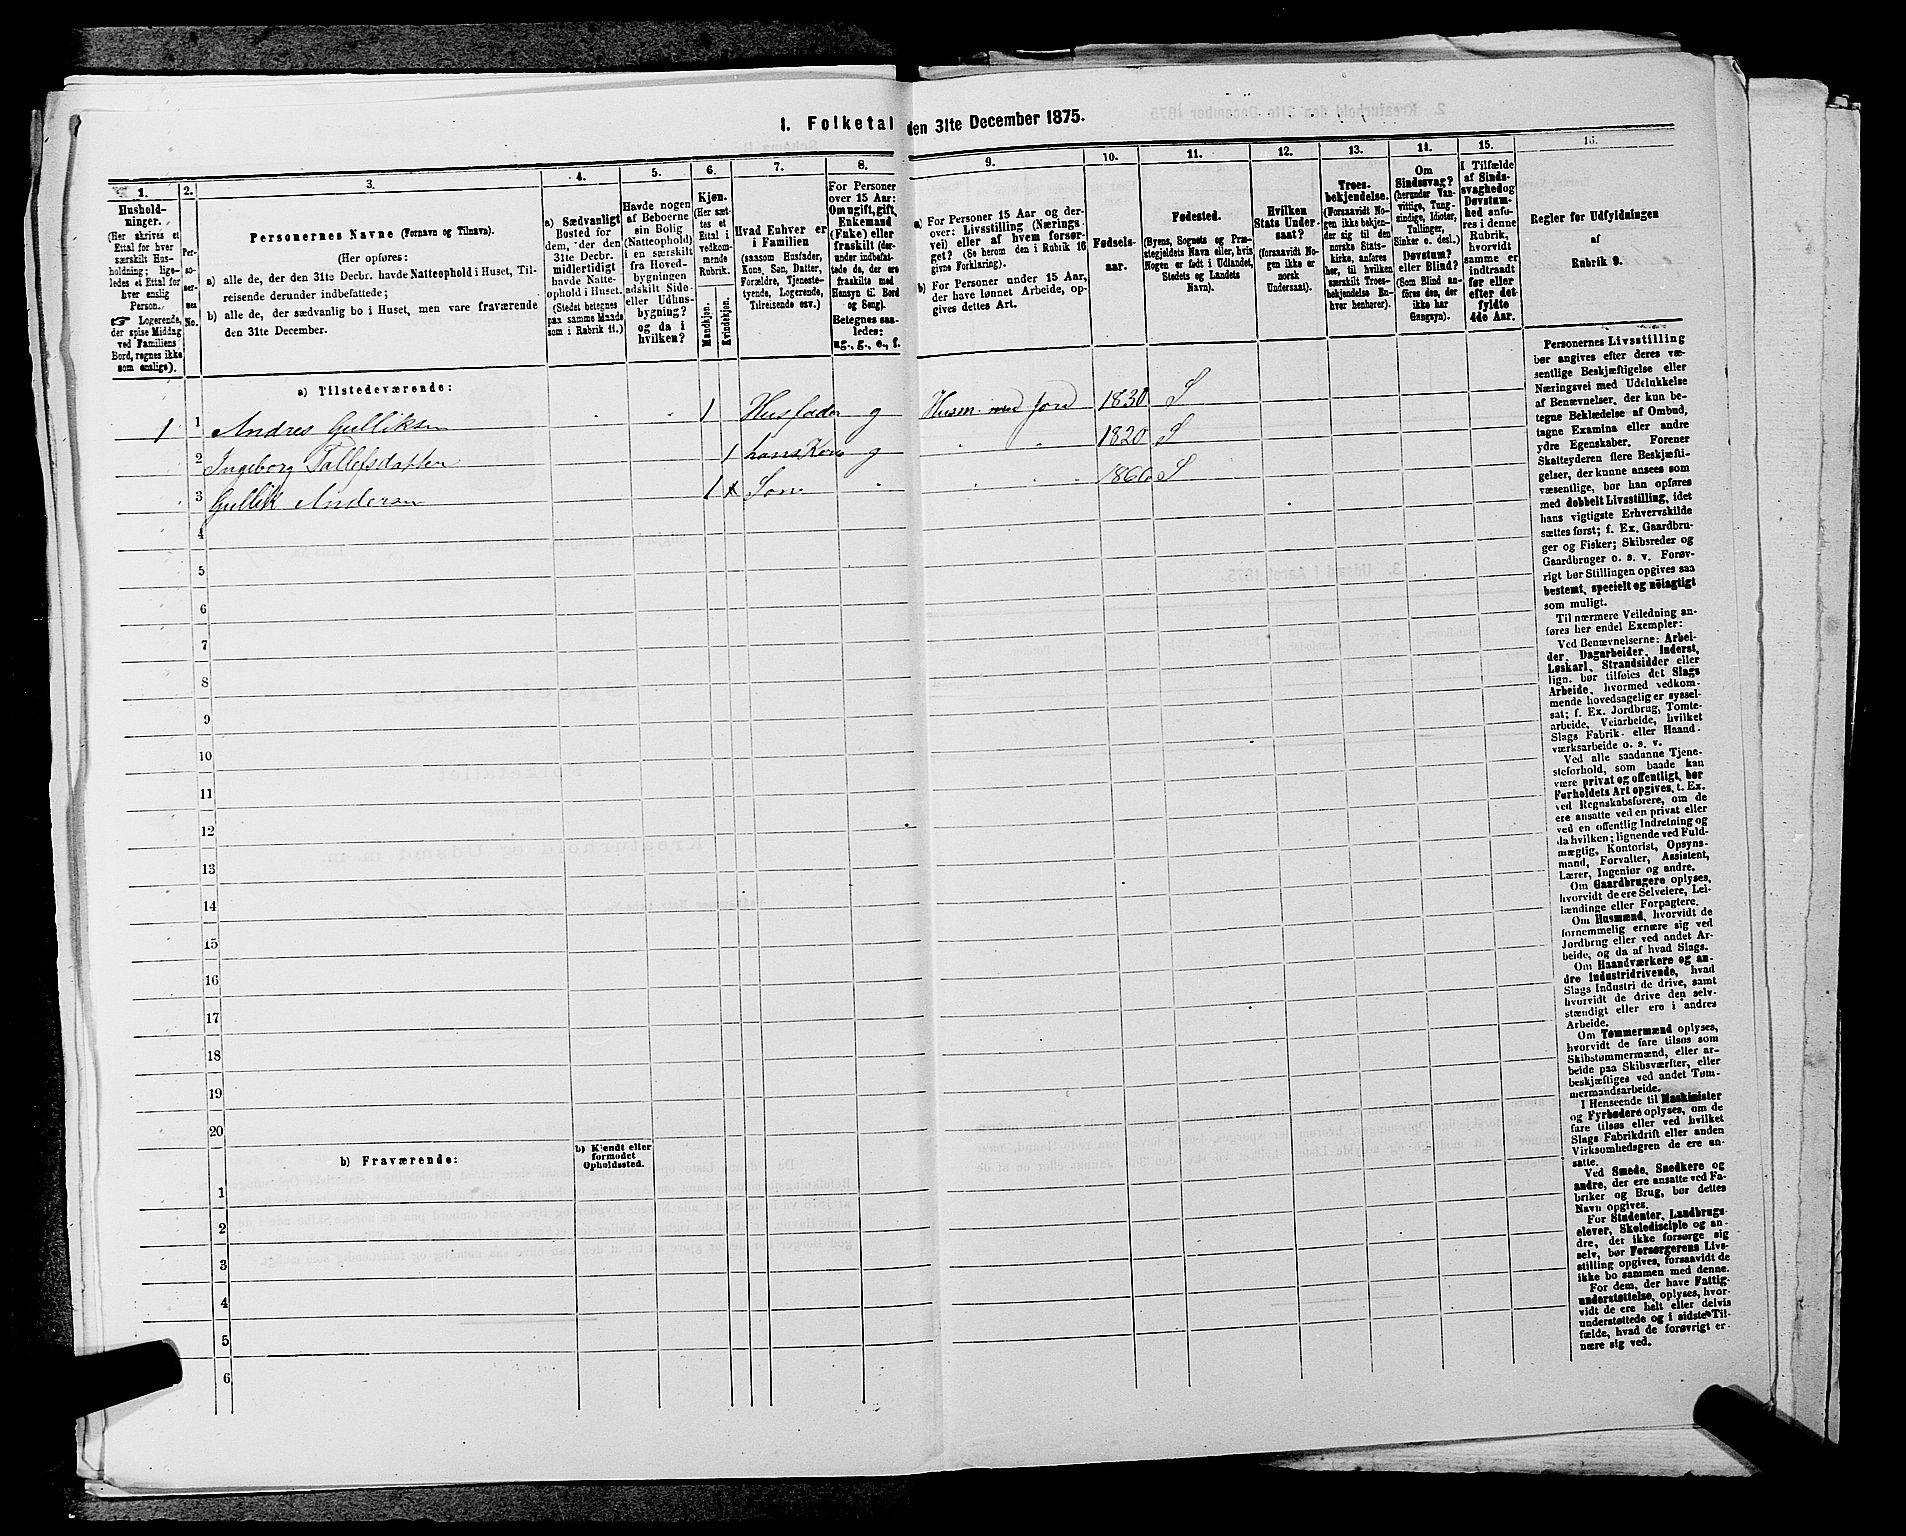 1. Folketal den 31te December 1875.
1.
Hushold-
ninger.
(Her skrives et
Ettal for hver
særskilt Hus-
holdning; lige-
ledes et Ettal for
hver enslig
Person.
☞ Logerende,
der spise Middag
ved Familiens
Bord, regnes ikke
som enslige).
2.
Per-
so-
ner-
nes
No.
3.
Personernes Navne (Fornavn og Tilnavn).
(Her opføres:
a) alle de, der den 31te Decbr. havde Natteophold i Huset, Til-
reisende derunder indbefattede;
b) alle de, der sædvanlig bo i Huset, men vare fraværende
den 31te December.
4.
a) Sædvanligt
Bosted for
dem, der den
31te Decbr.
midlertidigt
havde Natte-
ophold i Huset.
(Stedet betegnes
paa samme Maade
som i Rubrik 11.)
5.
Havde nogen
af Beboerne
sin Bolig
(Natteophold)
i en særskilt
fra Hoved-
bygningen
adskilt Side-
eller Udhus-
bygning?
og da i
hvilken?
6.
Kjøn.
(Her sæt-
tes et
Ettal i
vedkom-
mende
Rubrik.
Mandkjøn.
Kvindekjøn.
7.
Hvad Enhver er
i Familien
(saasom Husfader,
Kone, Søn, Datter,
Forældre, Tjeneste-
tyende, Logerende,
Tilreisende osv.)
8.
For Personer
over 15 Aar:
Om ugift, gift,
Enkemand
(Enke) eller
fraskilt (der-
under indbefat-
tede de, der ere
fraskilte med
Hensyn til Bord
og Seng).
Betegnes saa-
ledes:
ug., g., e., f.
9.
a) For Personer 15 Aar og der-
over: Livsstilling (Nærings-
vei) eller af hvem forsør-
get? (Se herom den i Rubrik 16
givne Forklaring).
b) For Personer under 15 Aar,
der have lønnet Arbeide, op-
gives dettes Art.
10.
Fødsels-
aar.
11.
Fødested.
(Byens, Sognets og Præ-
stegjeldets Navn eller, hvis
Nogen er født i Udlandet,
Stedets og Landets
Navn).
12.
Hvilken
Stats Under-
saat?
(forsaavidt No-
gen ikke er
norsk
Undersaat).
13.
Troes-
bekjendelse.
(Forsaavidt No-
gen ikke bekjen-
der sig til den
norske Stats-
kirke, anføres
her, til hvilken
særskilt Troes-
bekjendelse En-
hver henhører).
14.
Om
Sindssvag?
(herunder Van-
vittige, Tung-
sindige, Idioter,
Tullinger,
Sinker o. desl.)
Døvstum?
eller Blind?
(Som Blind an-
føres den, der
ikke har
Gangsyn).
15.
I Tilfælde
af Sinds-
svaghed og
Døvstum-
hed anfø-
res i denne
Rubrik,
hvorvidt
samme er
indtraadt
før eller
efter det
fyldte
4de Aar.
16.
Regler for Udfyldningen
af
Rubrik 9.
a) Tilstedeværende:
1 1 Andres Gulliksen 1 Husfader g Husm med Jord 1830 S
2 Ingeborg Tallefsdatter 1 hans Kone g 1820 S
3 Gullik Andersen 1 Søn 1860 S
4
5
6
7
8
9
10
11
12
13
14
15
16
17
18
19
20
b) Fraværende:
b) Kjendt eller
formodet
Opholdssted.
1
2
3
4
5
6
Personernes Livsstilling
bør angives efter deres væ-
sentlige Beskjæftigelse eller
Næringsvei med Udelukkelse
af Benævnelser, der kun be-
tegne Beklædelse af Ombud,
tagne Examina eller andre
ydre Egenskaber. Forener
Skatteyderen flere Beskjæfti-
gelser, der kunne ansees som
væsentlige, bør han opføres
med dobbelt Livsstilling, idet
hans vigtigste Erhvervskilde
sættes først; f. Ex. Gaardbru-
ger og Fisker; Skibsreder og
Gaardbruger o. s. v. Forøv-
rigt bør Stillingen opgives saa
bestemt, specielt og nöiagtigt
som muligt.
Til nærmere Veiledning an-
føres her endel Exempler:
Ved Benævnelserne: Arbei-
der, Dagarbeider, Inderst,
Løskarl, Strandsidder eller
lign. bør tilføies det Slags
Arbeide, hvormed vedkom-
mende hovedsagelig er syssel-
sat; f. Ex. Jordbrug, Tomte-
arbeide, Veiarbeide, hvilket
Slags Fabrik- eller Haand-
værksarbeide o. s. v.
Ved alle saadanne Tjene-
steforhold, som baade kan
være privat og offentligt, bør
Forholdets Art opgives, t. Ex.
ved Regnskabsførere, om de
ere ansatte ved en privat eller
ved en offentlig Indretning og
da hvilken; lignende ved Fuld-
mægtig, Kontorist, Opsyns-
mand, Forvalter, Assistent,
Lærer, Ingeniør og andre.
Om Gaardbrugere oplyses,
hvorvidt de ere Selveiere, Lei-
lændinge eller Forpagtere.
Om Husmænd, hvorvidt de
fornemmelig ernære sig ved
Jordbrug eller ved andet Ar-
beide, og da af hvad Slags.
Om Haandværkere og an-
dre Industridrivende, hvad
Slags Industri de drive, samt
hvorvidt de drive den selv-
stændigt eller ere i andres
Arbeide.
Om Tømmermænd oplyses,
hvorvidt de fare tilsøs som
Skibstømmermænd, eller ar-
beide paa Skibsværfter, eller
beskjæftiges ved andet Tøm-
mermandsarbeide.
I Henseende til Maskinister
og Fyrbødere oplyses, om de
fare tilsøs eller ved hvilket
Slags Fabrikdrift eller anden
Virksomhedsgren de ere an-
satte.
Ved Smede, Snedkere og
andre, der ere ansatte ved Fa-
briker og Brug, bør dettes
Navn opgives.
For Studenter, Landbrugs-
elever, Skoledisciple og an-
dre, der ikke forsørge sig
selv, bør Forsørgerens Livs-
stilling opgives, forsaavidt de
ikke bo sammen med denne.
For dem, der have Fattig-
understøttelse, oplyses, hvor-
vidt de ere helt eller delvis
understøttede og i sidste Til-
fælde, hvad de forøvrigt er-
nære sig ved.